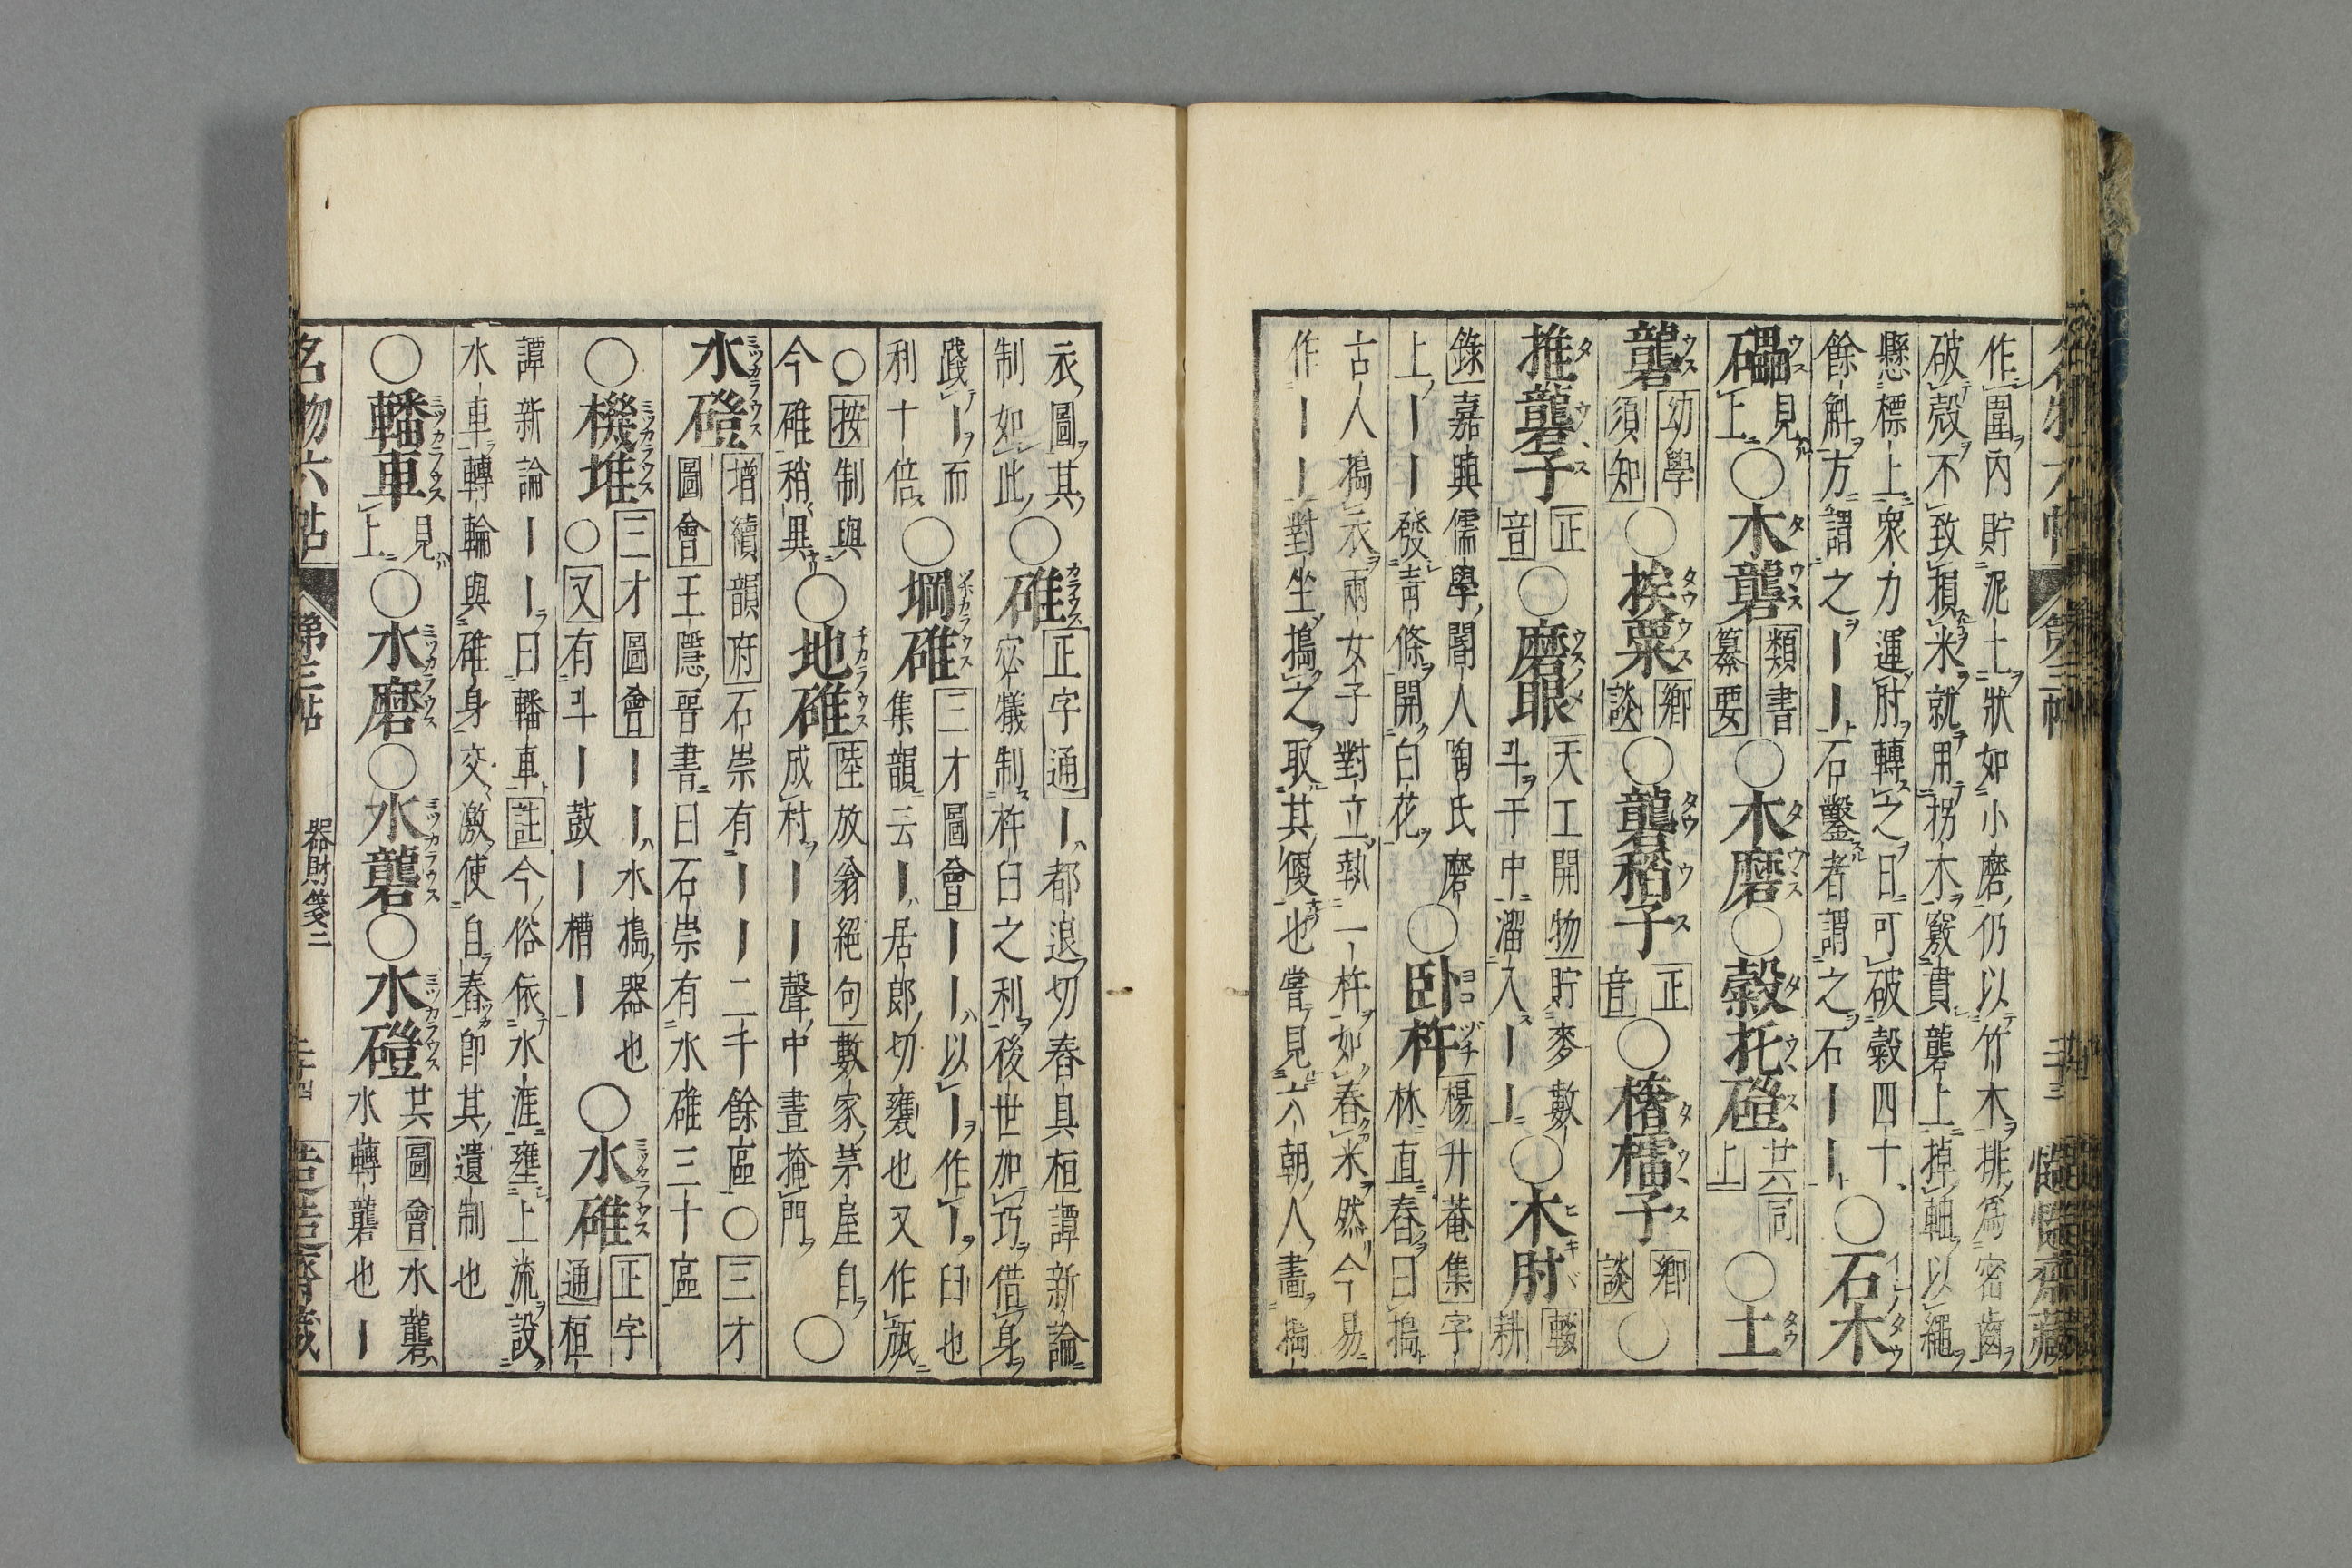 作圍內貯泥土狀如小磨仍以竹木排爲密齒
破殻不致損米就用拐木竅貫礱上掉軸以繩
懸標上衆力運肘轉之日可破穀四十
餘斛方謂之ーー石鑿者謂之石ーー○石木
䃺見上○木礱類書纂要○木磨○穀托磑共同上○土
礱幼學須知○挨粟鄉談○礱稻子正音○㯿檑子鄉談○
推礱子正音○磨眼天工開物貯麥數斗于中溜入ーー○木肘輟耕
錄嘉興儒學閽人陶氏磨
上ーー發靑條開白花○臥杵楊升菴集字林直舂曰搗
古人搗衣兩女子對立執一杵如舂米然今易
作ーー對坐搗之取其便也嘗見六朝人畵搗
衣圖其
制如此○碓正字通ー都退切舂具桓譚新論
宓犠制杵臼之利後世加巧借身
踐ー而
利十倍○堈碓三才圖會ーー以ー作ー臼也
集韻云ー居郎切甕也又作㼚
○按制與
今碓稍異○地碓陸放翁絕句數家茅屋自
成村ーーー聲中晝掩門○
水磑增續韻府石崇有ーー二千餘區○三才
圖會王隱晉書曰石崇有水碓三十區
○機堆三才圖會ーー水搗器也
○又有斗ー鼓ー槽ー○水碓正字通桓
譚新論ーー曰轓車註今俗依水涯壅上流設
水車轉輪與碓身交激使自舂卽其遺制也
○轓車見上○水磨○水礱○水磑共圖會水礱
水轉礱也ー
名物六帖 第三帖 器財箋二 二十四